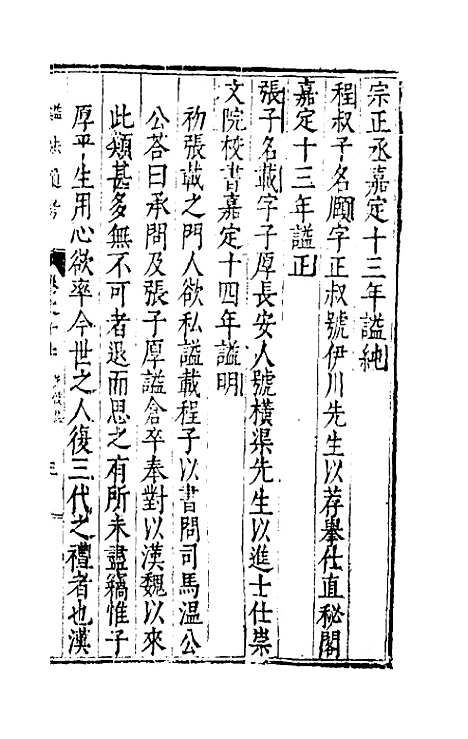 宗正丞嘉定十三年謚純
程叔子名頥字正叔號伊川先生以荐舉仕直秘閣
嘉定十三年謚正
張子名載字子厚長安人號横渠先生以進士仕崇
文院校書嘉定十四年謚明
初張載之門人欲私謚載程子以書問司馬温公
公荅曰承問及張子厚謚倉卒奉對以漢魏以來
此類甚多無不可者退而思之有所未盡竊惟子
厚平生用心欲率今世之人復三代之禮者也漢
謚法通考
三